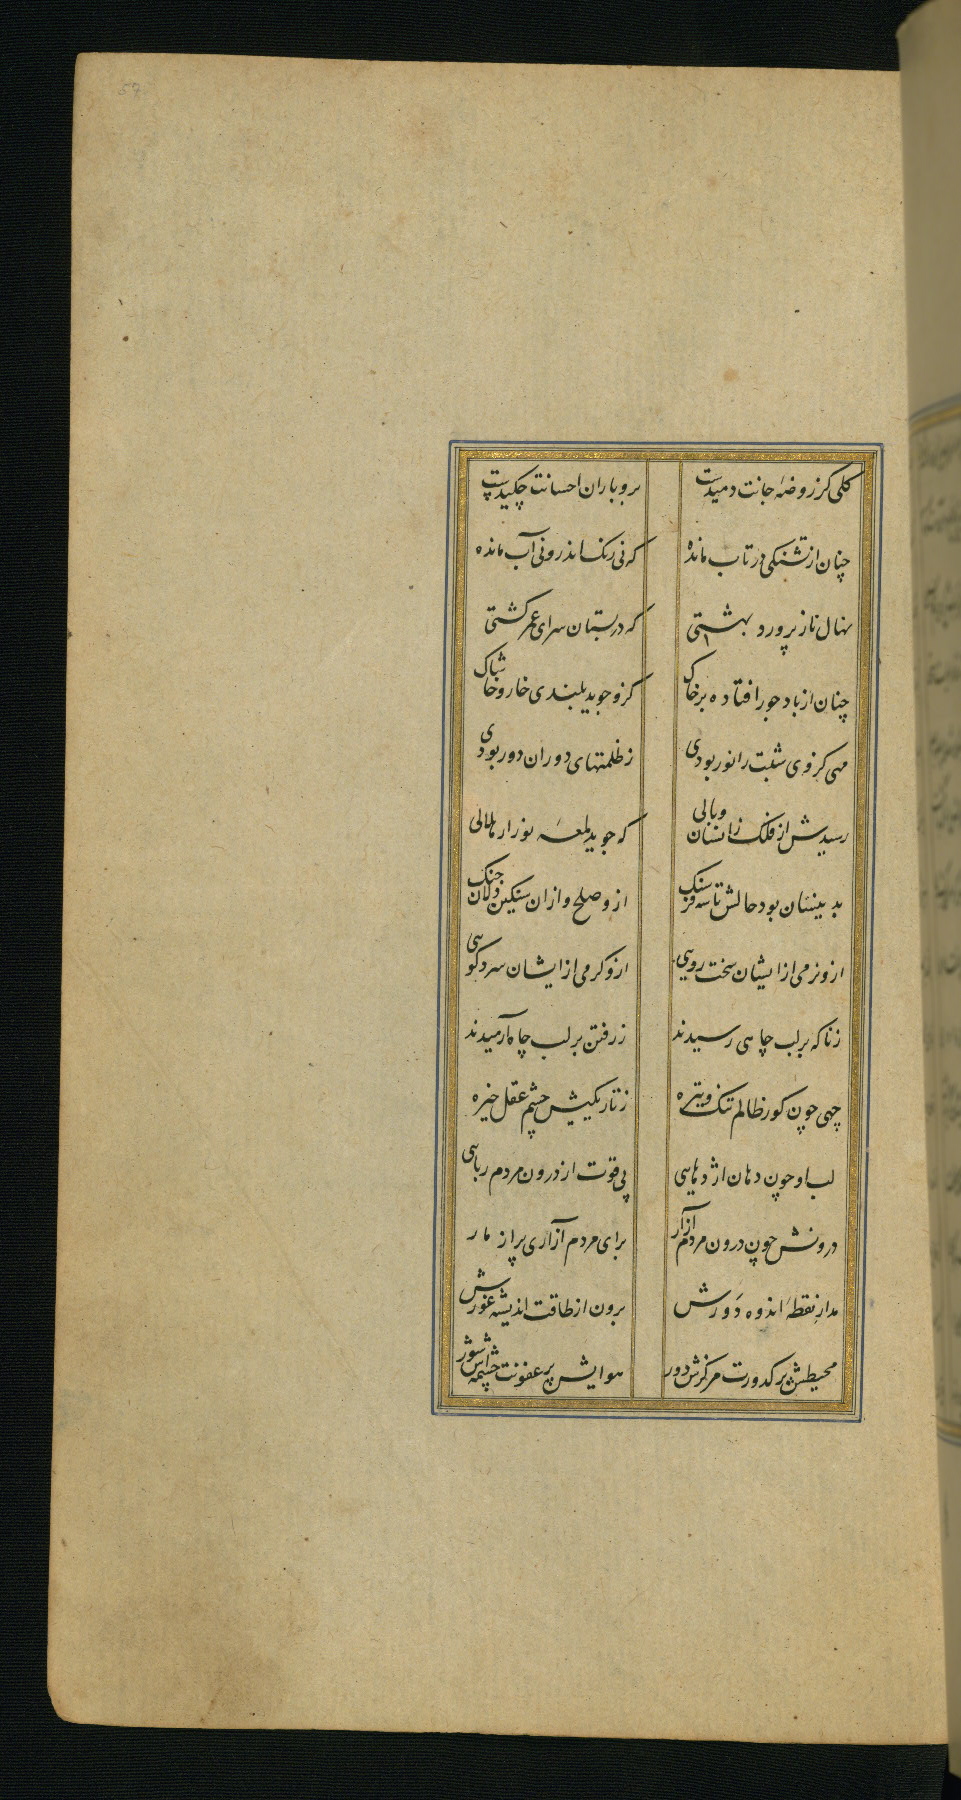 57
کلی کز روضهٔ جانت دمیدست
برو باران احسانت چکیدست
چنان از تشنکی در تاب مانده
که نی رنک اندرو نی آب مانده
نهال ناز پرورد بهشتی
که در بستان سرای عمر کشتی
چنان از باد جور افتاده بر خاک
کزو جوید بلندی خار و خاشاک
مهی کز وی شبت را نور بودی
ز ظلمتهای دوران دور بودی
رسیدش از فلک زانسان وبالی
که جوید لمعهٔ نور از هلالی
بدینسان بود حالش تا سه فرسنک
ازو صلح و ازان سنکین دلان جنک
ازو نرمی از ایشان سخت رویی
ازو کرمی از ایشان سرد کویی
زناکه بر لب چاهی رسیدند
ز رفتن بر لب چاه آرمیدند
چهی چون کور ظالم تنک و تیره
ز تاریکیش چشم عقل خیره
لب او چون دهان اژدهایی
پی قوت از درون مردم ربایی
درونش چون درون مردم آزار
برای مردم آزاری پر از مار
مدار نقطهٔ اندوه دورش
برون از طاقت اندیشه غورش
محیطش پر کدورت مرکزش دور
هوایش پر عفونت چشمه اش شور